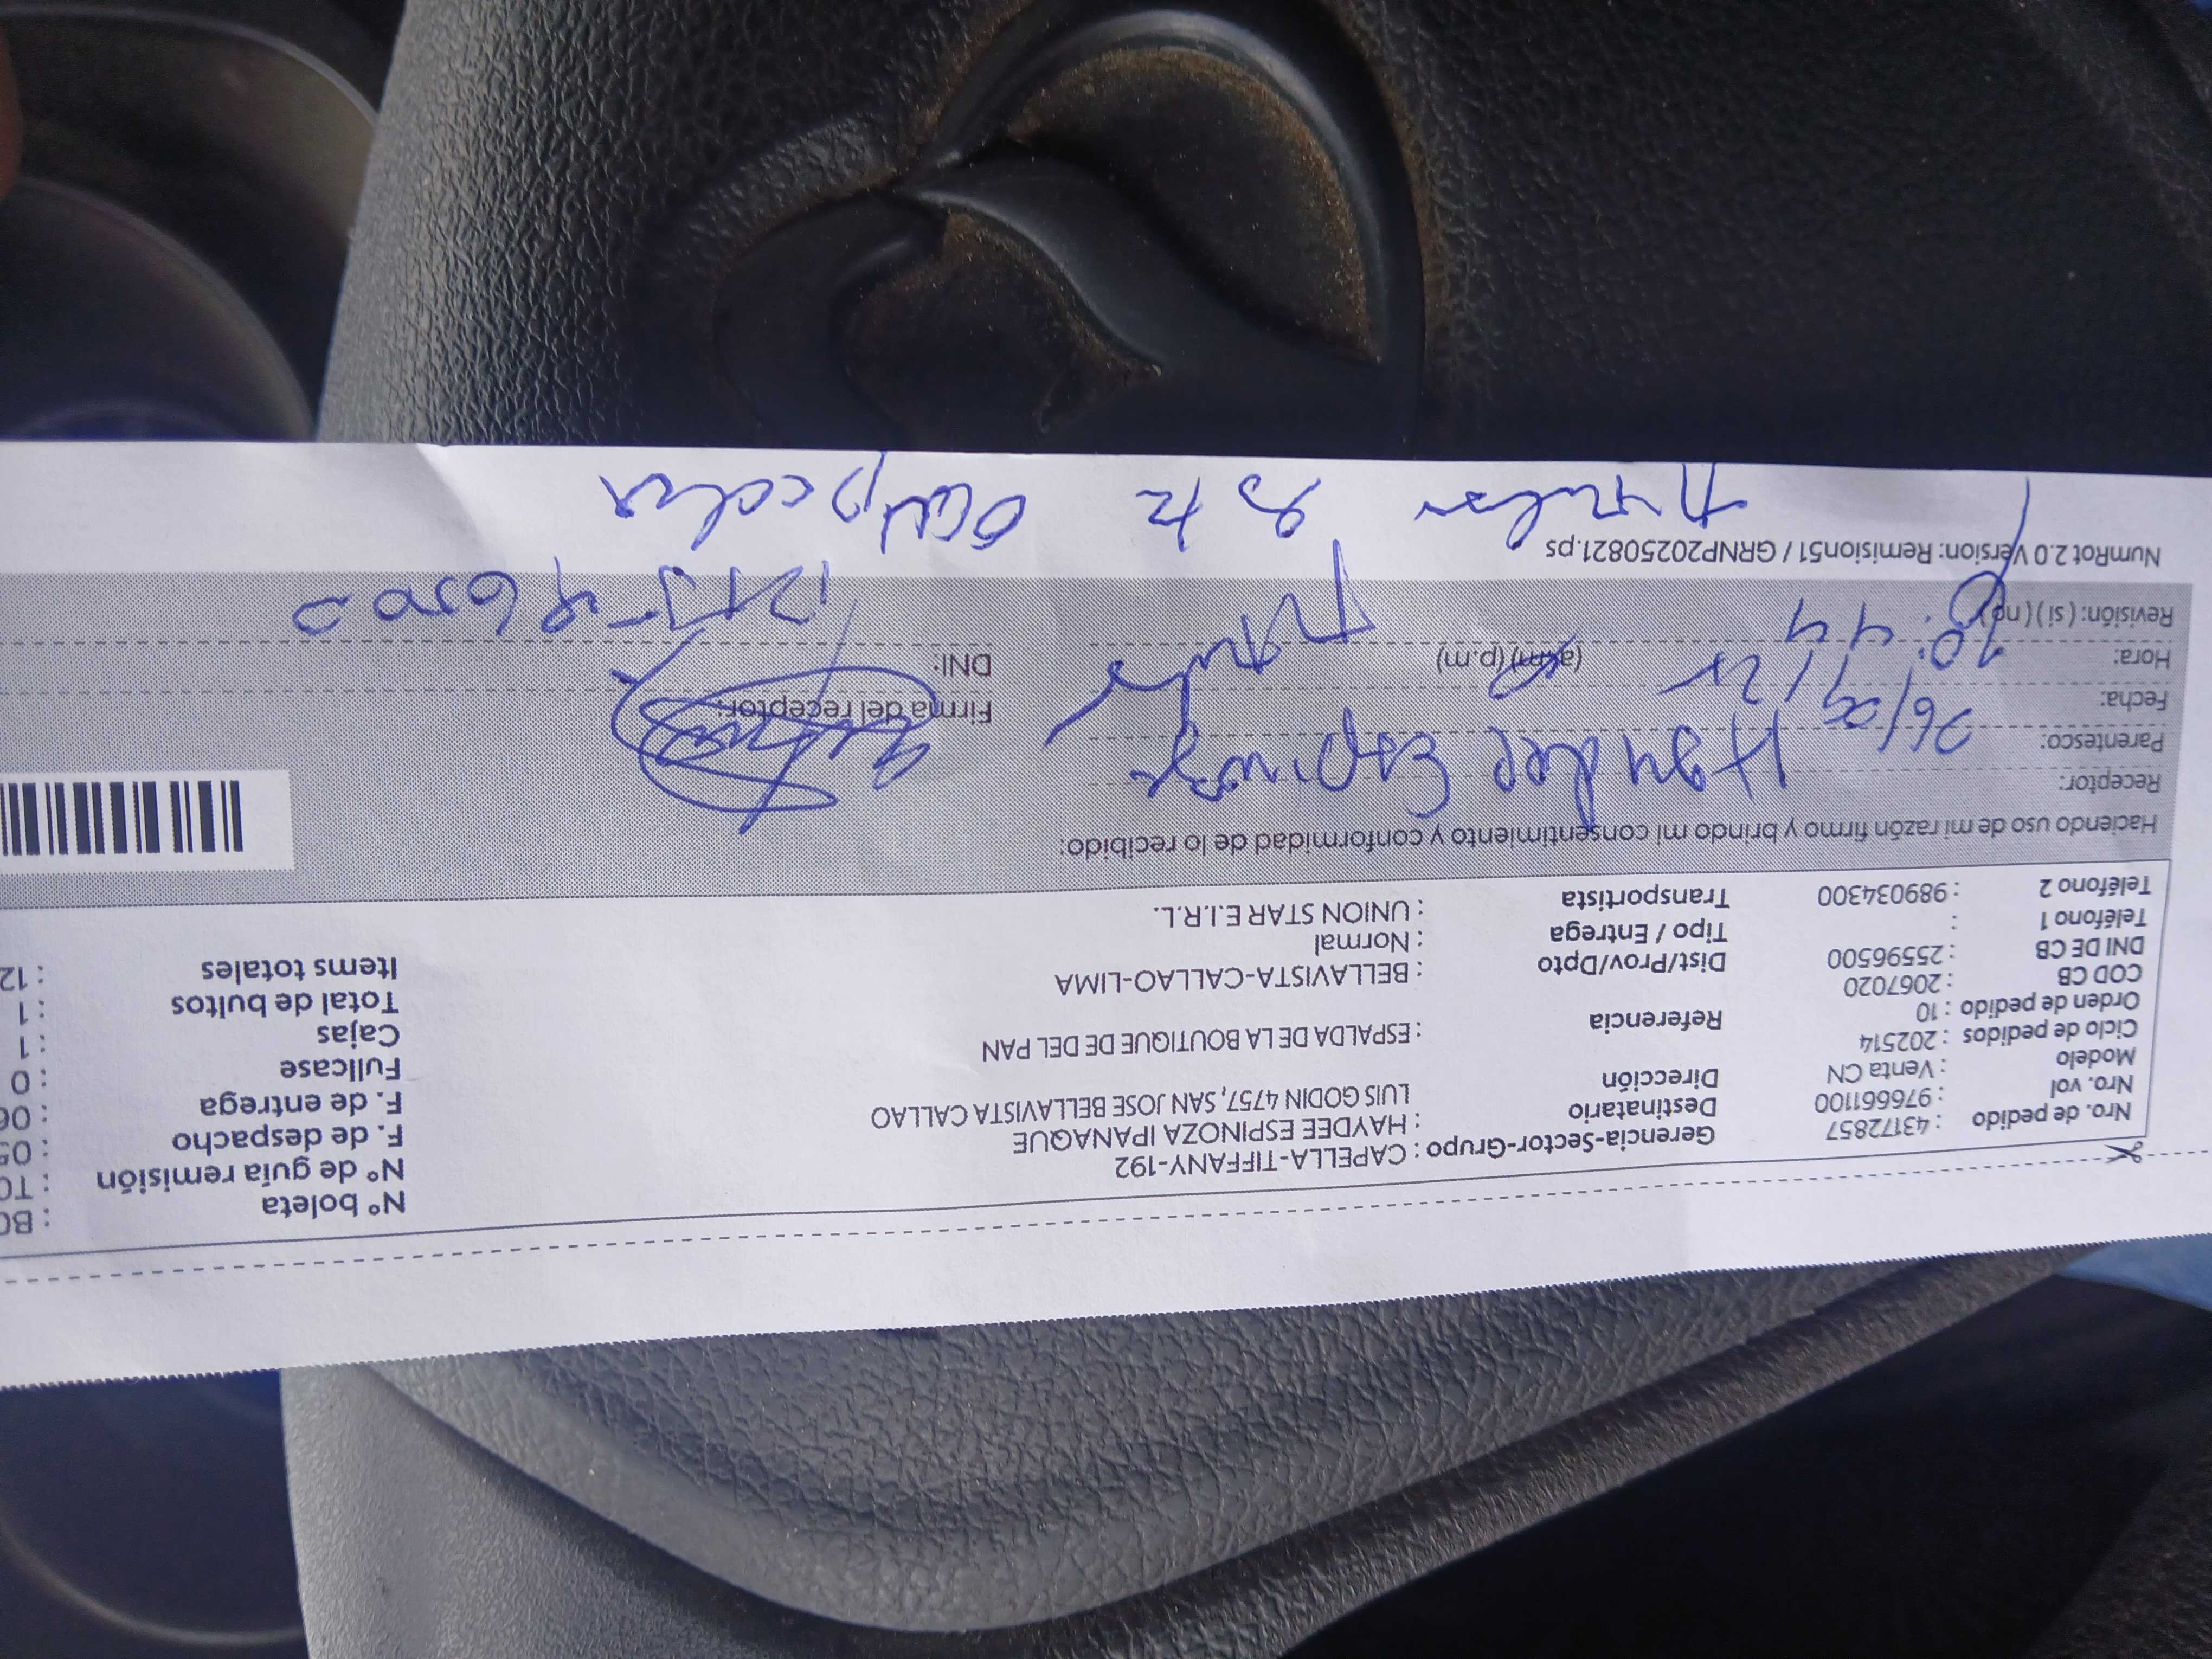 Nro. de pedido : 43172857
Nro. vol : 976661100
Modelo : Venta CN
Ciclo de pedidos : 202514
Orden de pedido : 10
COD CB : 2067020
DNI DE CB : 25596500
Teléfono 1 :
Teléfono 2 : 989034300
Gerencia-Sector-Grupo : CAPELLA-TIFFANY-192
Destinatario : HAYDEE ESPINOZA IPANAQUE
Dirección LUIS GODIN 4757, SAN JOSE BELLAVISTA CALLAO
Referencia : ESPALDA DE LA BOUTIQUE DE DEL PAN
Dist/Prov/Dpto : BELLAVISTA-CALLAO-LIMA
Tipo / Entrega : Normal
Transportista : UNION STAR E.I.R.L.
N° boleta : B0
N° de guía remisión : T0
F. de despacho : 05
F. de entrega : 06
Fullcase : 0
Cajas : 1
Total de bultos : 1
Items totales : 12
Haciendo uso de mi razón firmo y brindo mi consentimiento y conformidad de lo recibido:
Receptor: Haydee Espinoza
Parentesco:
Fecha:
Hora: 10:44 (a.m) (p.m)
Revisión: (si) (no)
Firma del receptor:
DNI:
NumRot 2.0 Version: Remision51 / GRNP20250821.ps